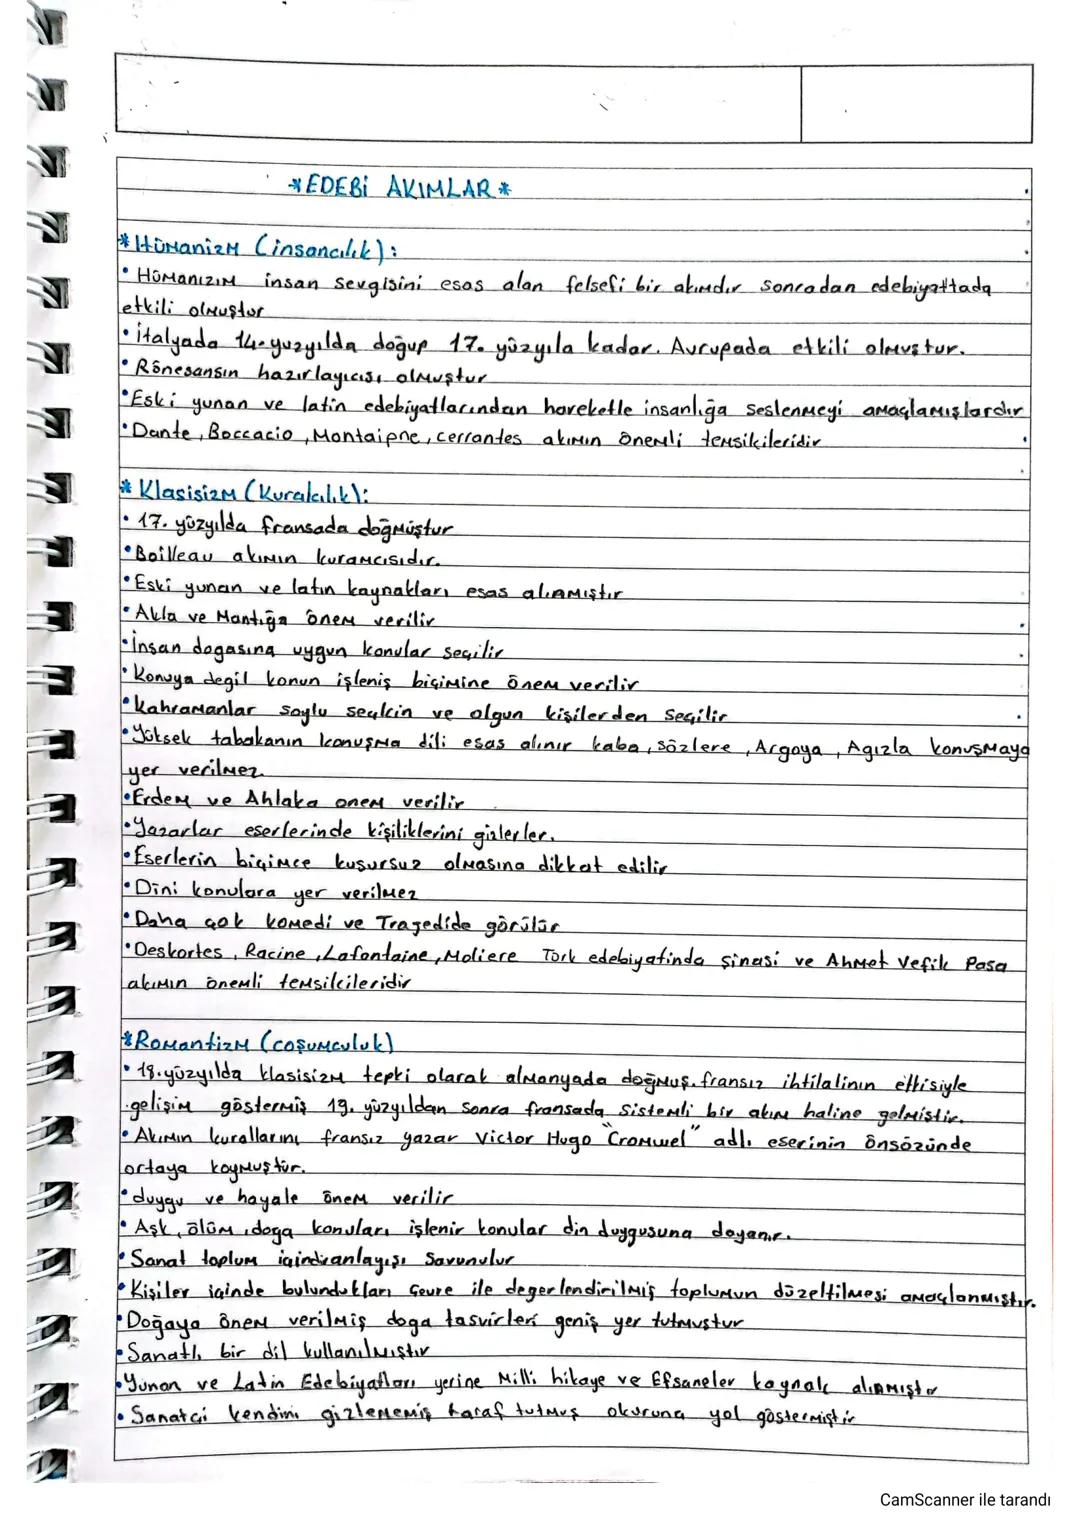 *EDEBİ AKIMLAR*
*Hümanizm (insancılık):
• Hümanızım insan sevgisini esas alan felsefi bir akımdır sonradan edebiyattada
etkili olmuştur
• İtalyada 14. yuzyılda doğup 17. yüzyıla kadar. Avrupada etkili olmuştur.
• Rönesansın hazırlayıcısı olmuştur
• Eski yunan ve latin edebiyatlarından hareketle insanlığa seslenmeyi amaçlamışlardır
• Dante, Boccacio, Montaipne, cerrantes akımın önemli temsikileridir
* Klasisizm (Kuralcılık):
• 17. yüzyılda fransada doğmuştur
• Boilleau akımın kuramcısıdır.
• Eski yunan ve latın kaynakları esas alınmıştır
• Akla ve Mantığa önem verilir
• İnsan dogasına uygun konular seçilir
• Konuya degil konun işleniş biçimine önem verilir
• Kahramanlar soylu seçkin ve olgun kişilerden seçilir
• Yüksek tabakanın konuşma dili esas alınır kaba, sözlere, Argoya, Agızla konuşmaya
yer verilmez.
• Erdem ve Ahlaka onem verilir
• Yazarlar eserlerinde kişiliklerini gizlerler.
• Eserlerin biçimce kusursuz olmasına dikkat edilir
• Dini konulara yer verilmez
• Daha çok komedi ve Trajedide görülür
• Deskortes, Racine, Lafontaine, Moliere Türk edebiyatinda şinasi ve Ahmet Vefik Pasa
akımın önemli temsilcileridir
*Romantizm (coşumculuk)
• 18. yüzyılda klasisizm tepki olarak almanyada doğmuş. fransız ihtilalinin etkisiyle
gelişim göstermiş 19. yüzyıldan sonra fransada sistemli bir akım haline gelmiştir.
• Akımın kurallarını fransız yazar Victor Hugo "Cromwel" adlı eserinin önsözünde
ortaya koymuştur.
• duygu ve hayale önem verilir
• Aşk, ölüm, doga konuları işlenir konular din duygusuna dayanır.
• Sanat toplum içindir anlayışı savunulur
• Kişiler içinde bulundukları çevre ile degerlendirilmiş toplumun düzeltilmesi amaçlanmıştır.
• Doğaya önem verilmiş doga tasvirleri geniş yer tutmuştur
• Sanatlı bir dil kullanılmıştır
• Yunan ve Latin Edebiyatları yerine Milli hikaye ve Efsaneler kaynak alınmıştır
• Sanatçi kendini gizlememiş taraf tutmuş okuruna yol göstermiştir
CamScanner ile tarandı